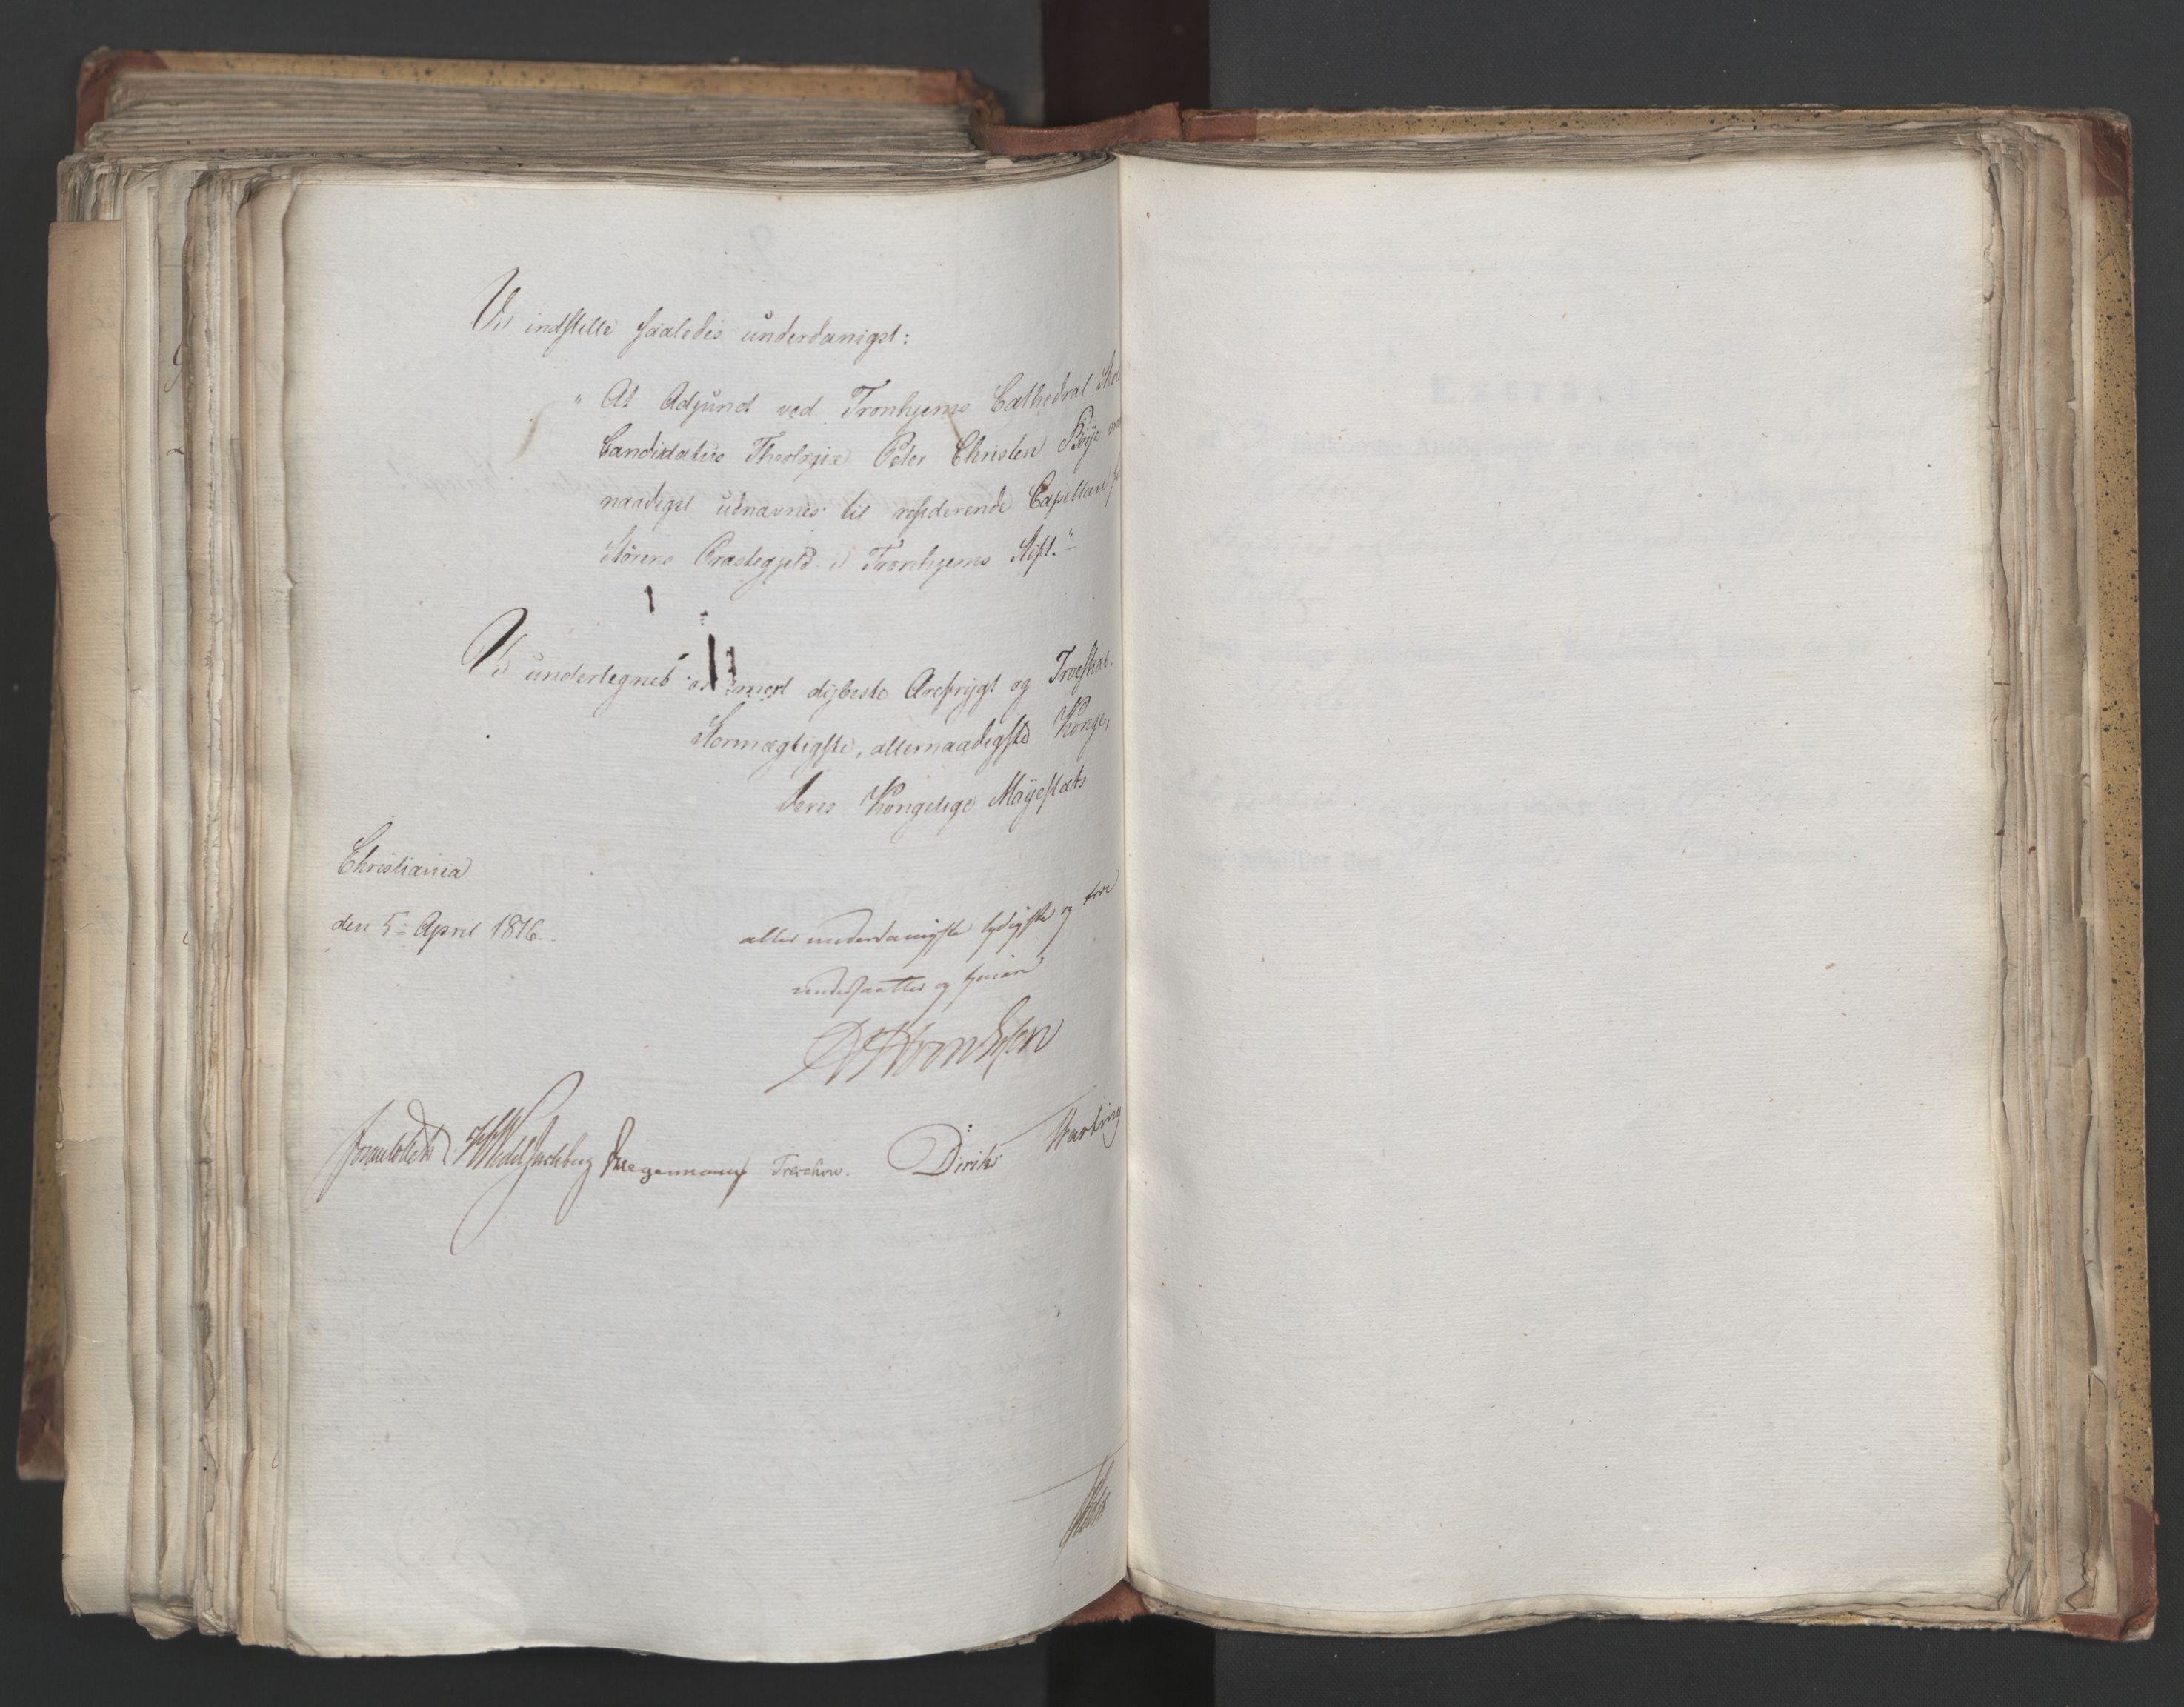 Vi indstille saaledes underdanigst:
"At Adjunct ved Tronhjems Cathedral Skol
Candidatus Theologiæ Peter Christen Böÿe
naadigst udnævnes til residerende Capellan
Störens Præstegjeld i Tronhjems Stift."
Vi undertegnes med dÿbeste Ærefrÿgt og Troeskab,
Stormægtigste, allernaadigste Konge,
Deres Kongelige Maÿestæts
Christiania
den 5te April 1816.
aller underdanigste lydigste og troe
undersaatter og tienere
Sommerhielm Wedel Jarlsberg Krogemann Treschow. Diriks